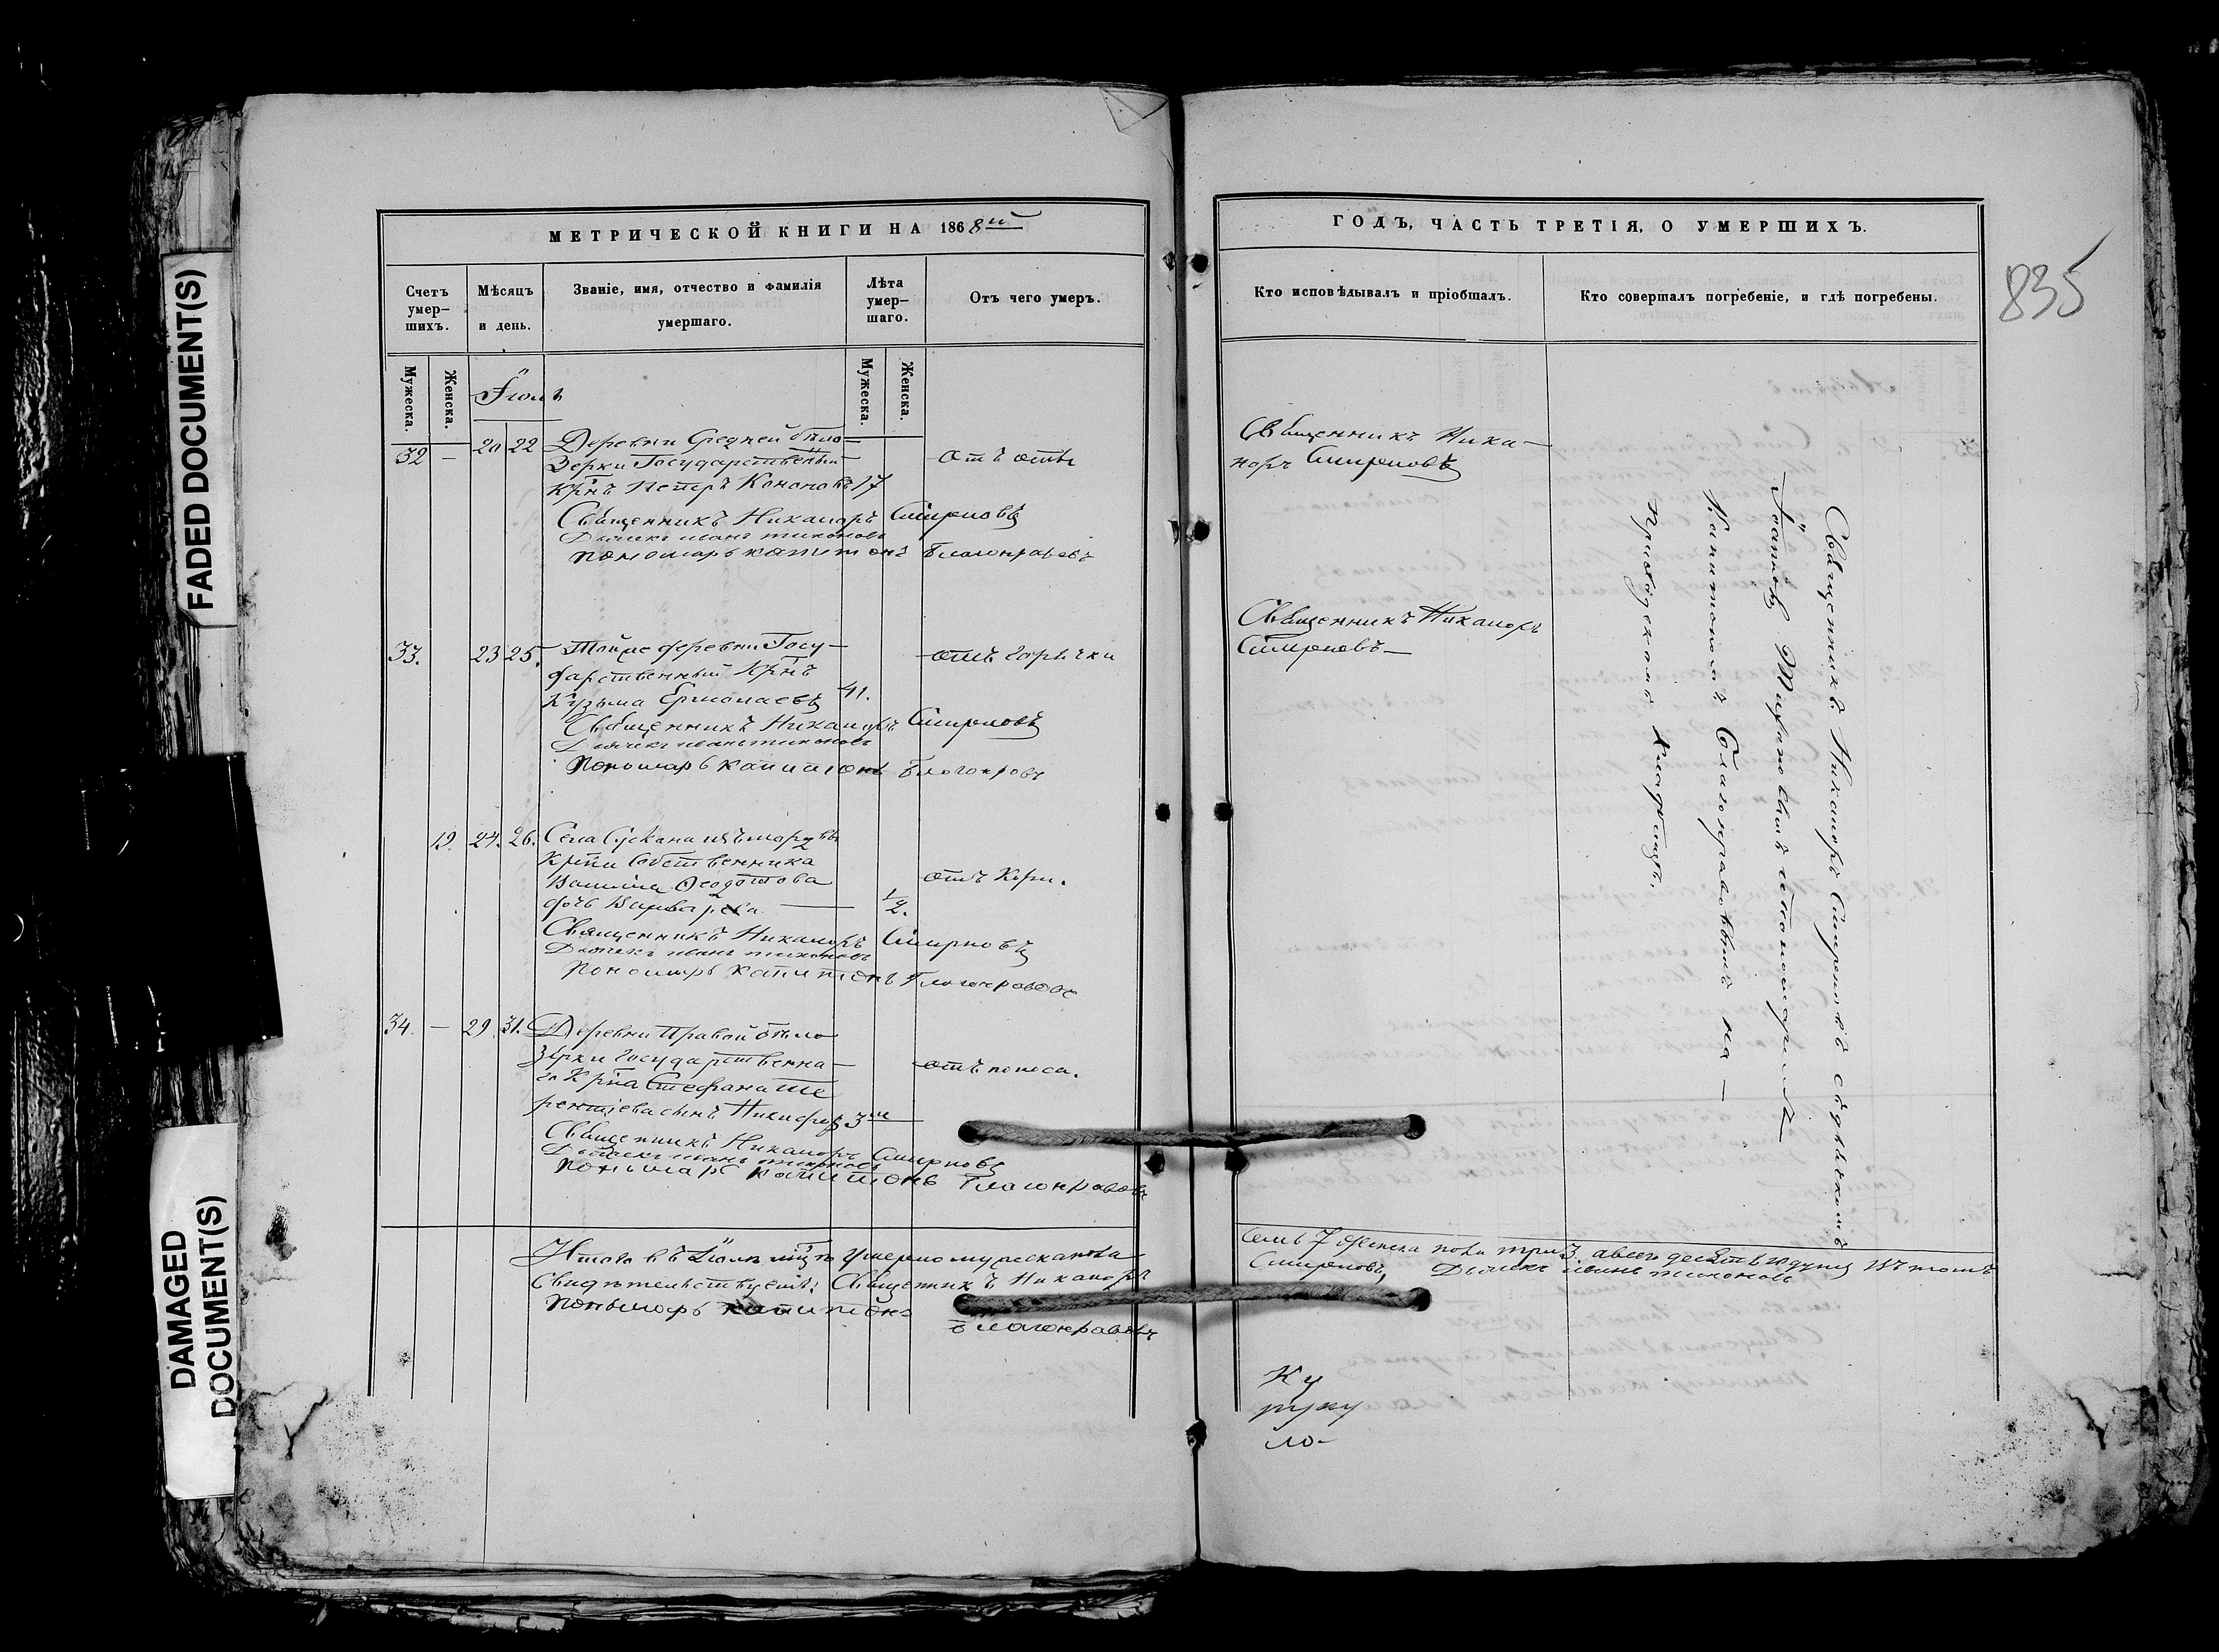 МЕТРИЧЕСКОЙ КНИГИ НА 1868й
Счетъ умер-шихъ.
Мѣсяцъ и день.
Званіе, имя, отчество и фамилія умершаго.
Лѣта умер-шаго.
Отъ чего умеръ.
Мужеска.
Женска.
Мужеска.
Женска.
Іюль
32 — 20 22 Деревни Средней бѣло-
зерки Государственный
крнъ Петръ Кононовъ 17
отъ оспы
Священникъ Никаноръ Смирновъ
Дьячекъ иванъ тихоновъ
пономарь капитонъ Благонравовъ
33. 23 25. Тойже деревни Госу-
дарственный крнъ
Кузьма Ермолаевъ 41.
отъ горячки
Священникъ Никаноръ Смирновъ
Дьячекъ иванъ тихоновъ
Пономарь капитонъ Благонровъ
19. 24. 26. Села Сускана изъ мордвы
крна Собственника
Ѳедотова
дочь Варвара 1/2.
отъ Кори.
Священникъ Никаноръ Смирновъ
Дьячекъ иванъ тихоновъ
Пономарь капитонъ Благонравовъ
34. — 29. 31. Деревни Правой бѣло
зерки государственна-
го крна Стефана Те
рентіева сынъ Никифоръ 3
отъ поноса.
Священникъ Никаноръ Смирновъ
Дьячекъ иванъ тихоновъ
Пономарь капитонъ Благонравовъ
Итого въ Іюлѣ мцѣ умерло мужеска пола
Свидѣтельствуетъ: Священникъ Никаноръ
Пономарь капитонъ
Благонравовъ
ГОДЪ, ЧАСТЬ ТРЕТІЯ, О УМЕРШИХЪ.
835
Кто исповѣдывалъ и пріобщалъ.
Кто совершалъ погребеніе, и гдѣ погребены.
Священникъ Ника-
норъ Смирновъ
Священникъ Никаноръ
Смирновъ
Священникъ Никаноръ Смирновъ съ дьячкомъ
Іоанномъ Тихоновымъ и пономаремъ
Капитономъ Благонравовымъ на —
приходскомъ кладбищѣ.
семь 7 женска пола три 3. а всего десять 10 душъ въ томъ
Смирновъ, Дьячекъ иванъ тихоновъ